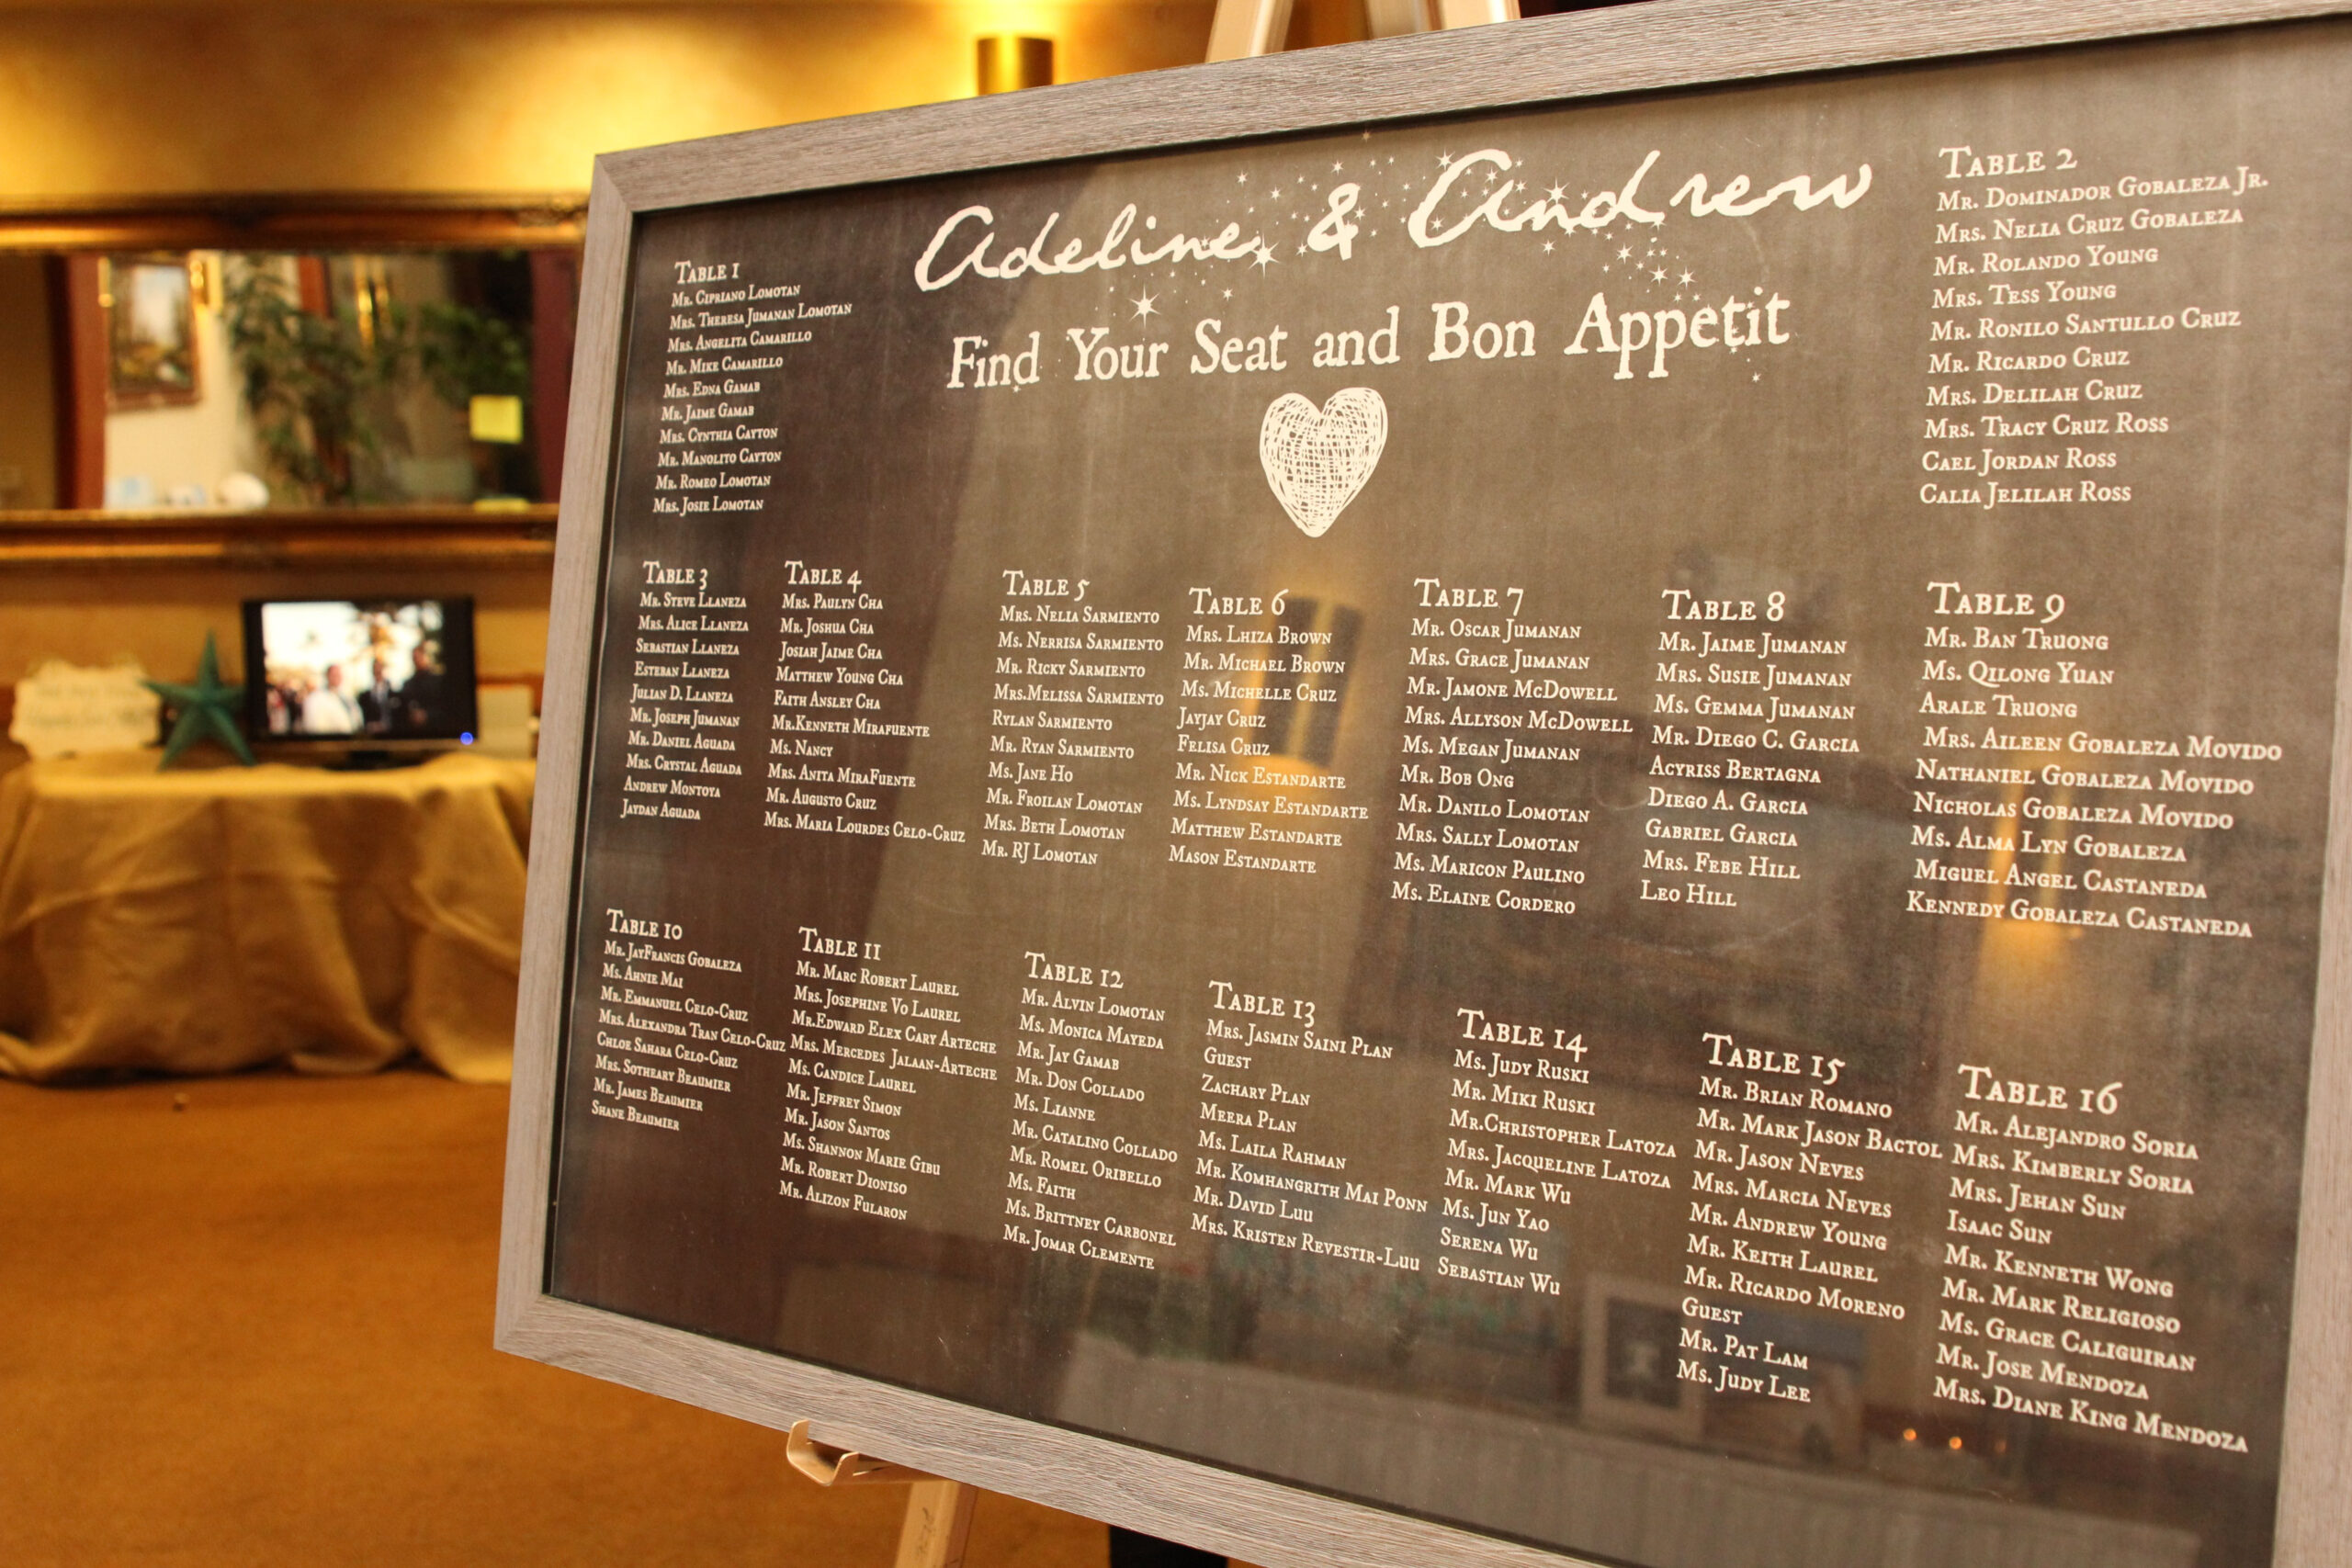 Adeline & Andrew
Find Your Seat and Bon Appetit
Table 1
Mr. Cipriano Lomotan
Mrs. Theresa Jumanan Lomotan
Mrs. Angelita Camarillo
Mr. Mike Camarillo
Mrs. Edna Gamab
Mr. Jaime Gamab
Mrs. Cynthia Cayton
Mr. Manolito Cayton
Mr. Romeo Lomotan
Mrs. Josie Lomotan
Table 2
Mr. Dominador Gobaleza Jr.
Mrs. Nelia Cruz Gobaleza
Mr. Rolando Young
Mrs. Tess Young
Mr. Ronilo Santullo Cruz
Mr. Ricardo Cruz
Mrs. Delilah Cruz
Mrs. Tracy Cruz Ross
Cael Jordan Ross
Calia Jelilah Ross
Table 3
Mr. Steve Llaneza
Mrs. Alice Llaneza
Sebastian Llaneza
Esteban Llaneza
Julian D. Llaneza
Mr. Joseph Jumanan
Mr. Daniel Aguada
Mrs. Crystal Aguada
Andrew Montoya
Jaydan Aguada
Table 4
Mrs. Paulyn Cha
Mr. Joshua Cha
Josiah Jaime Cha
Matthew Young Cha
Faith Ansley Cha
Mr.Kenneth Mirafuente
Ms. Nancy
Mrs. Anita MiraFuente
Mr. Augusto Cruz
Mrs. Maria Lourdes Celo-Cruz
Table 5
Mrs. Nelia Sarmiento
Ms. Nerrisa Sarmiento
Mr. Ricky Sarmiento
Mrs.Melissa Sarmiento
Rylan Sarmiento
Mr. Ryan Sarmiento
Ms. Jane Ho
Mr. Froilan Lomotan
Mrs. Beth Lomotan
Mr. RJ Lomotan
Table 6
Mrs. Lhiza Brown
Mr. Michael Brown
Ms. Michelle Cruz
Jayjay Cruz
Felisa Cruz
Mr. Nick Estandarte
Ms. Lyndsay Estandarte
Matthew Estandarte
Mason Estandarte
Table 7
Mr. Oscar Jumanan
Mrs. Grace Jumanan
Mr. Jamone McDowell
Mrs. Allyson McDowell
Ms. Megan Jumanan
Mr. Bob Ong
Mr. Danilo Lomotan
Mrs. Sally Lomotan
Ms. Maricon Paulino
Ms. Elaine Cordero
Table 8
Mr. Jaime Jumanan
Mrs. Susie Jumanan
Ms. Gemma Jumanan
Mr. Diego C. Garcia
Acyriss Bertagna
Diego A. Garcia
Gabriel Garcia
Mrs. Febe Hill
Leo Hill
Table 9
Mr. Ban Truong
Ms. Qilong Yuan
Arale Truong
Mrs. Aileen Gobaleza Movido
Nathaniel Gobaleza Movido
Nicholas Gobaleza Movido
Ms. Alma Lyn Gobaleza
Miguel Angel Castaneda
Kennedy Gobaleza Castaneda
Table 10
Mr. JayFrancis Gobaleza
Ms. Ahnie Mai
Mr. Emmanuel Celo-Cruz
Mrs. Alexandra Tran Celo-Cruz
Chloe Sahara Celo-Cruz
Mrs. Sotheary Beaumier
Mr. James Beaumier
Shane Beaumier
Table 11
Mr. Marc Robert Laurel
Mrs. Josephine Vo Laurel
Mr.Edward Elex Cary Arteche
Mrs. Mercedes Jalaan-Arteche
Ms. Candice Laurel
Mr. Jeffrey Simon
Mr. Jason Santos
Ms. Shannon Marie Gibu
Mr. Robert Dioniso
Mr. Alizon Fularon
Table 12
Mr. Alvin Lomotan
Ms. Monica Mayeda
Mr. Jay Gamab
Mr. Don Collado
Ms. Lianne
Mr. Catalino Collado
Mr. Romel Oribello
Ms. Faith
Ms. Brittney Carbonel
Mr. Jomar Clemente
Table 13
Mrs. Jasmin Saini Plan
Guest
Zachary Plan
Meera Plan
Ms. Laila Rahman
Mr. Komhangrith Mai Ponn
Mr. David Luu
Mrs. Kristen Revestir-Luu
Table 14
Ms. Judy Ruski
Mr. Miki Ruski
Mr.Christopher Latoza
Mrs. Jacqueline Latoza
Mr. Mark Wu
Ms. Jun Yao
Serena Wu
Sebastian Wu
Table 15
Mr. Brian Romano
Mr. Mark Jason Bactol
Mr. Jason Neves
Mrs. Marcia Neves
Mr. Andrew Young
Mr. Keith Laurel
Mr. Ricardo Moreno
Guest
Mr. Pat Lam
Ms. Judy Lee
Table 16
Mr. Alejandro Soria
Mrs. Kimberly Soria
Mrs. Jehan Sun
Isaac Sun
Mr. Kenneth Wong
Mr. Mark Religioso
Ms. Grace Caliguiran
Mr. Jose Mendoza
Mrs. Diane King Mendoza